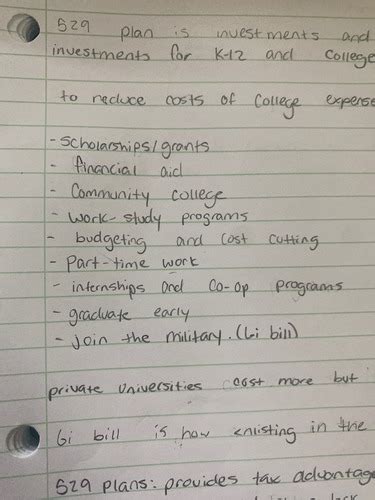 529 plan is investments and
investments for K-12 and College
to reduce costs of College expense
- Scholarships/grants
- financial aid
- Community college
- Work-study programs
- budgeting and cost cutting
- Part-time work
- internships and Co-op programs
- graduate early
- join the military. (Gi bill)
private Universities cost more but
Gi bill is how enlisting in the
529 plans: provides tax advantage